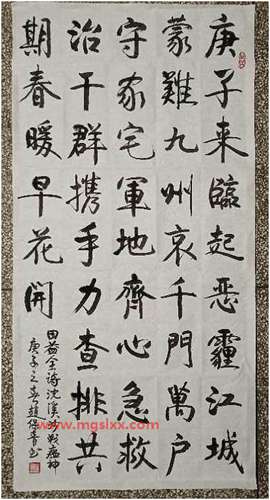 庚子来臨起恶霾江城
蒙難九州哀千門萬户
守家宅軍地齊心急救
治干群携手力查排共
期春暖早花開
田益全诗沈溪战瘟神
庚子之春趙保青书
www.mgslxx.com